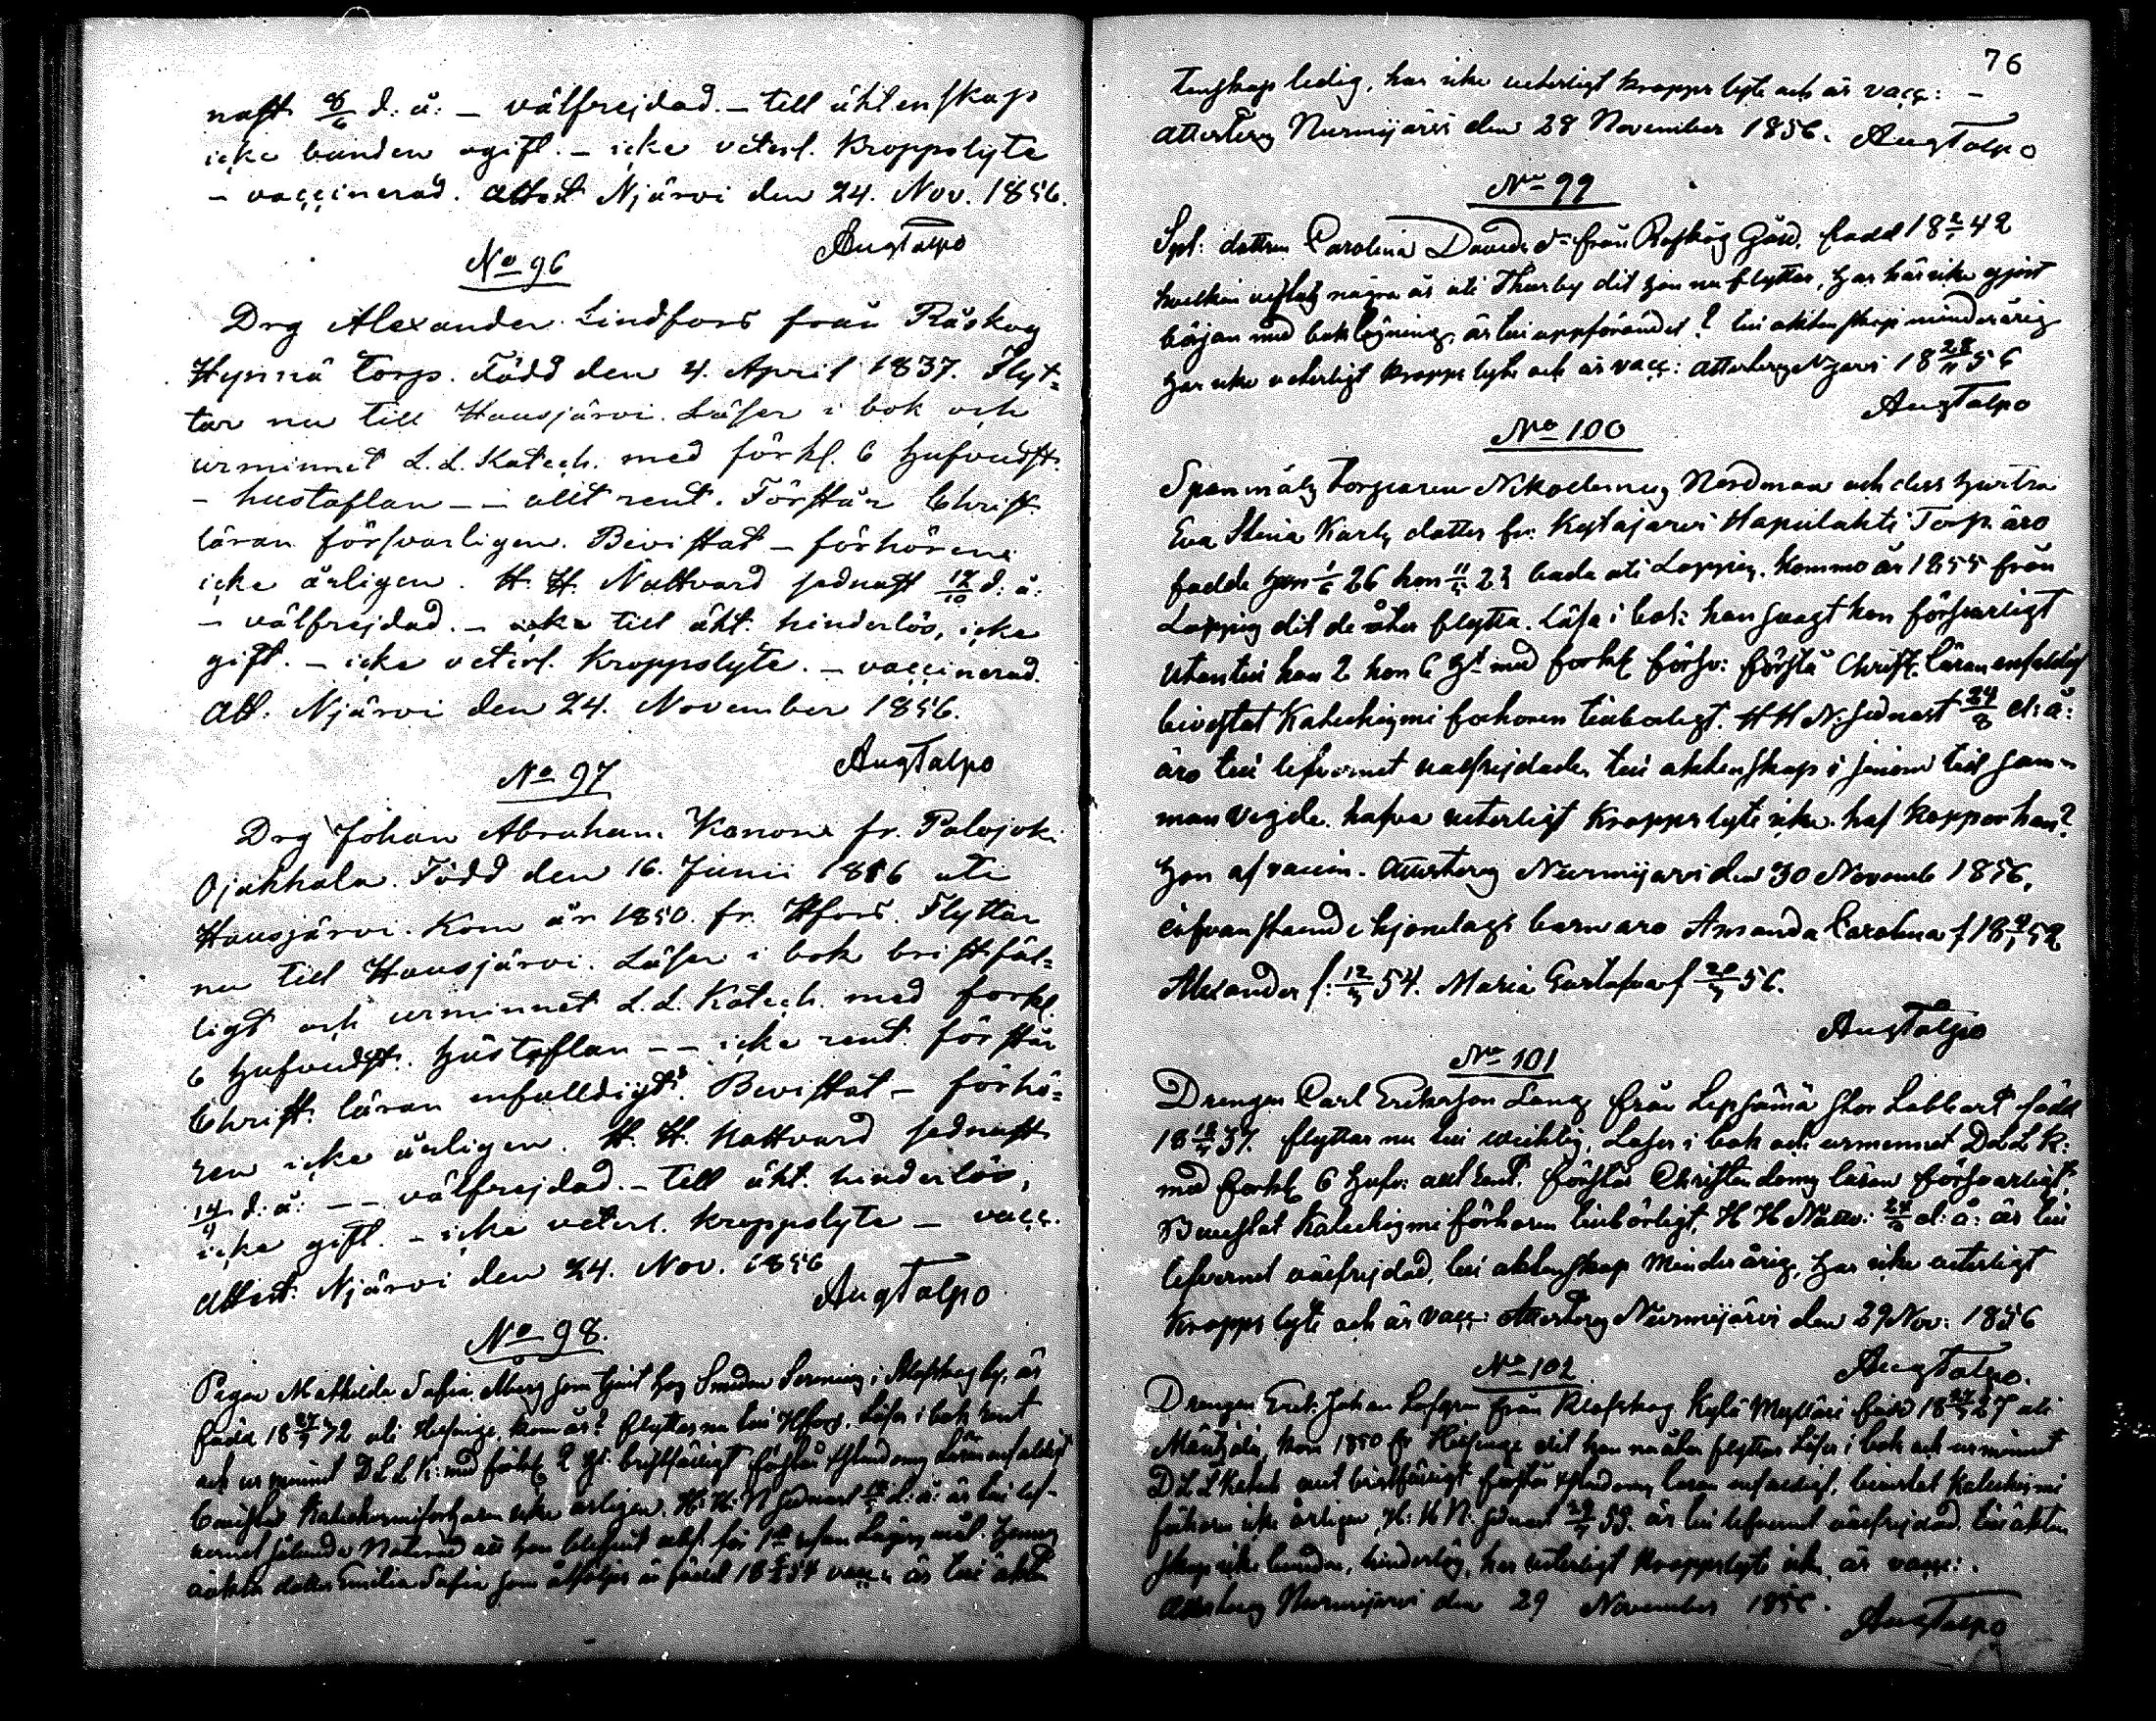 nast 8/6 d: å: – välfrejdad. – till äktenskap
icke bunden ogift. – icke veterl. Kroppslyte
– vaccinerad. Attest Njärvi den 24. Nov. 1856.
AugTalpo
No 96
Drg Alexander Lindfors från Råskog
Hynnä Torp. Född den 4. April 1837. Flyt=
tar nu till Hausjärvi. Läser i bok och
urminnet L. L. Katech. med förkl. 6 Hufvudst.
– hustaflan – – allt rent. Förstår Christ.
läran försvarligen. Bevistat – förhören
icke årligen. H. H. Nattvard sednast 12/10 d: å:
– välfrejdad. – till äkt. hinderlös, icke
gift. – icke veterl. Kroppslyte. – vaccinerad.
Att. Njärvi den 24. November 1856.
AugTalpo
No 97
Drg Johan Abraham Kanon fr. Palojoki
Ojakkala. Född den 16. Junii 1836 uti
Hausjärvi. Kom år 1850. fr. Hfors. Flyttar
nu till Hausjärvi. Läser i bok bristfäl=
ligt och urminnet L. L. Katech. med forkl.
6 Hufvudst. Hustaflan – – icke rent. förstår
Christ. läran enfalldigt. Bevistat – förhö=
ren icke årligen. H. H. Nattvard sednast
14/9 d: å: – – välfrejdad. – till äkt. hinderlös,
icke gift. – icke veterl. kroppslyte – vacc.
Attest. Njärvi den 24. Nov. 1856
AugTalpo
No 98.
Pigan Mathilda Sofia Åberg som tjent hos Smeden i by, är
född 18 uti Helsinge, kom år? flyttar nu till Hfors. Läser i bok rent
och ur minnet D L L K: med förkl 2 bristfälligt förstår läran enfaldigt
bevistat Katechismi förhören icke årligen. H: H: N sednast d: å: är till lef-
vernet
dotter Emilia Sofia som åtföljer är född 18 54 vacc: är till äkten
76
tenskap ledig, har icke veterligt kropps lyte och är vacc: –
Attesteras Nurmijärvi den 28 November 1856. AugTalpo
No 99
dottren Carolina Davids dr från Gård. född 18 2/1 42
hvilken vistats några år uti Thusby dit hon nu flyttar, har här icke gjort
början med bokläsning, är till uppförandet? till äktenskap minderårig
har icke veterligt kropps lyte och är vacc: Attesteras Njärvi 18 28/11 56
AugTalpo
No 100
Spanmåls Torparen Nikodemus Nordman och dess hustru
Eva Stina Karls dotter fr. Kytäjärvi Hapulahti Torp äro
födda han 1/6 26 hon 23 båda uti Loppis. Kommo år 1855 från
Loppis dit de åter flytta. Läsa i bok: han svagt hon försvarligt
utantill han 2 hon 6 Hst med forkl försv: förstå Christ. läran enfaldigt
bivistat Katechismi förhören tillbörligt. H H N. sednast 24/8 d: å:
äro till lefvernet välfrejdade, till äktenskap i genom till sam-
man vigde. hafva veterligt kropps lyte icke. haf koppor han?
hon af vaccin. Attesteras Nurmijärvi den 30 Novemb 1856.
ofvanstående hjonelags barn äro Amanda Carolina f 18 52
Alexander f: 54. Maria Gustafva f 56.
AugTalpo
No 101
Drengen Carl Eriksson Lang från Lepsämä Stor Labbart född
18 37. flyttar nu till Wichtis, Läser i bok och urminnet D L L K:
med forkl 6 Hufv: allt rent. förstår Christendoms läran försvarligt,
Bevistat Katechismi förhören tillbörligt, H H Nattv: d: å: är till
lefvernet välfrejdad, till äktenskap Minderårig, har icke veterligt
kropps lyte och är vacc: Attesteras Nurmijärvi den 29 Nov: 1856
AugTalpo.
No 102
Drengen Erik Johan Löfgren från Kylä född 18 27 uti
Mäntsälä, kom 1850 fr Helsinge dit han nu åter flyttar Läser i bok och ur minnet
D L L Katech bristfälligt förstår läran enfaldigt, bevistat Katechismi
förhören icke årligen, H: H N: sednast 53. är till lefvernet välfrejdad. till äkten
skap icke bunden, hinderlös, har veterligt kroppslyte icke, är vacc:.
Attesteras Nurmijärvi den 29 November 1856.
AugTalpo